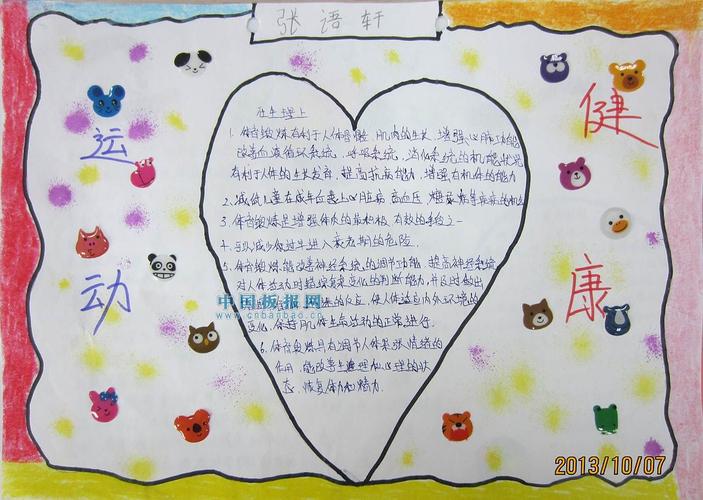 张语轩
运动
健康
在生理上
1、体育锻炼有利于人体骨骼、肌肉的生长,增强心肺功能
改善血液循环系统、呼吸系统、消化系统的机能状况
有利于人体的生长发育,提高抗病能力,增强有机体的能力
2、减低儿童在成年后患上心脏病,高血压,糖尿病等疾病的机会
3、体育锻炼是增强体质的最积极、有效的手段之一
4、可以减少你过早进入衰老期的危险.
5、体育锻炼能改善神经系统的调节功能,提高神经系统
对人体活动时错综复杂变化的判断能力,并及时做出
的反应,使人体适应内外环境的
变化、保持肌体生命活动的正常进行.
6、体育锻炼具有调节人体紧张情绪的
作用,能改善生理和心理的状
态,恢复体力和精力.
中国板报网
www.cnbanbao.cn
2013/10/07